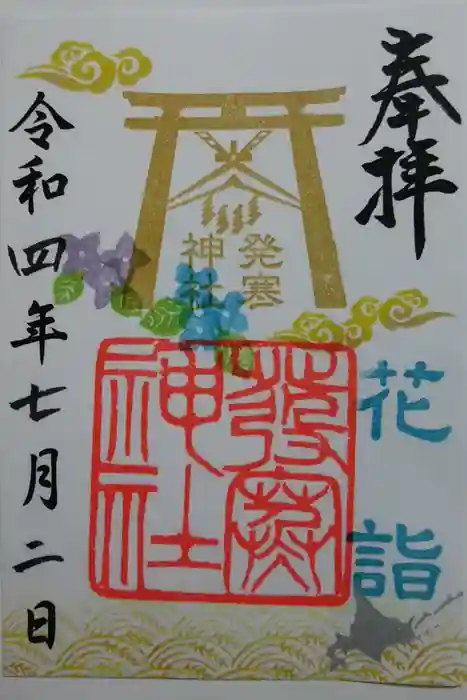 奉拝
花詣
発寒
神社
発寒
神社
令和四年七月二日